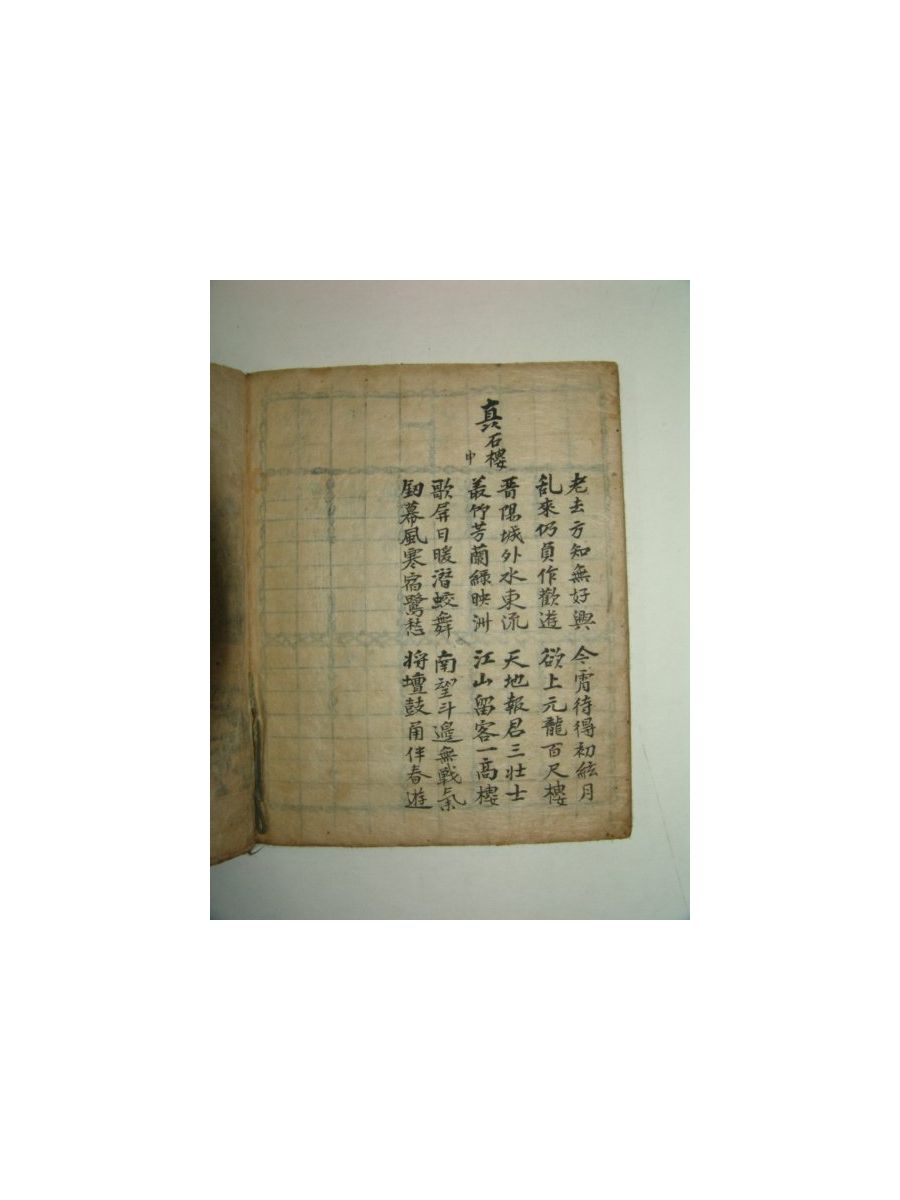 老去方知無好興 今宵待得初絃月
乱來仍負作歡遊 欲上元龍百尺樓
真石樓 申
晋陽城外水東流 天地報君三壮士
叢竹芳蘭綠映洲 江山留客一高樓
歌屛日暖潛蛟舞 南望斗邊無戰氣
釰幕風寒宿鷺愁 将壇鼓角伴春遊